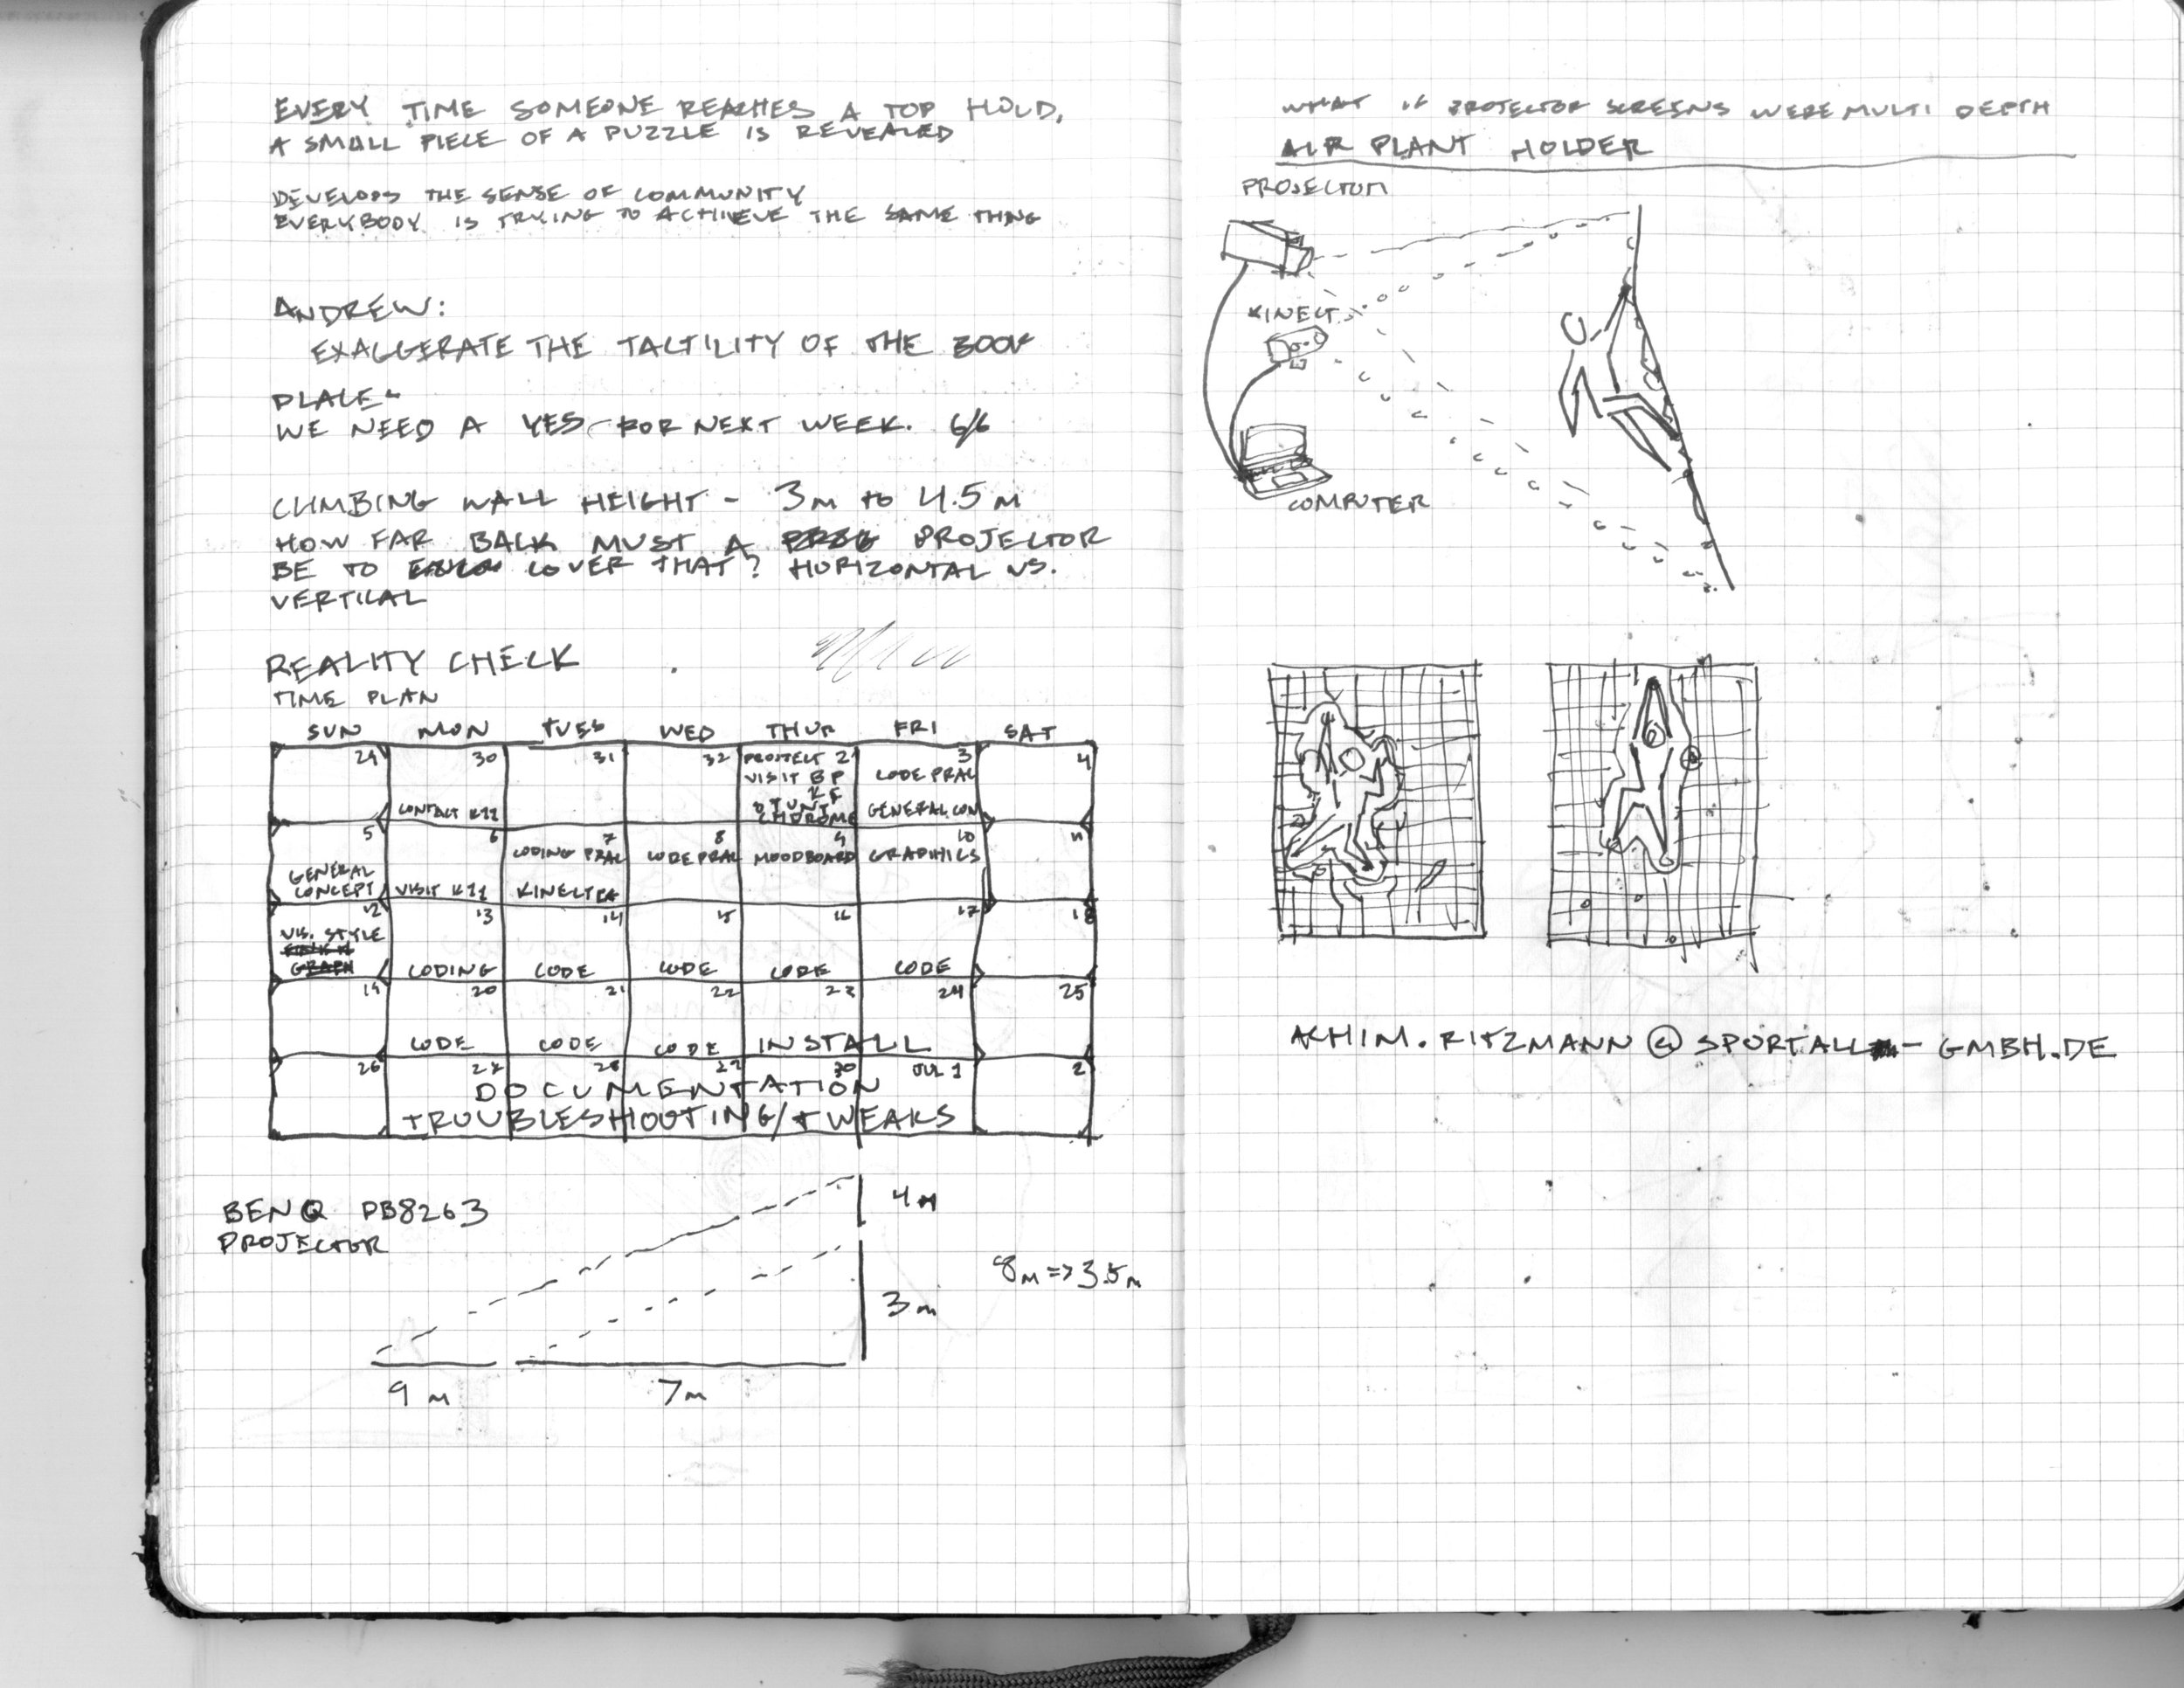 EVERY TIME SOMEONE REACHES A TOP HOLD,
A SMALL PIECE OF A PUZZLE IS REVEALED
DEVELOPS THE SENSE OF COMMUNITY
EVERYBODY IS TRYING TO ACHIEVE THE SAME THING
ANDREW:
EXAGGERATE THE TACTILITY OF THE BOOK
PLACE-
WE NEED A YES FOR NEXT WEEK. 6/6
CLIMBING WALL HEIGHT - 3m to 4.5m
HOW FAR BACK MUST A PROJECTOR
BE TO COVER THAT? HORIZONTAL VS.
VERTICAL
REALITY CHECK
TIME PLAN
SUN MON TUES WED THUR FRI SAT
29 30 31 32 PROJECT 2 3 4
VISIT BP CODE PRAC
CONTACT K11 CHDROME GENERAL CON
5 6 7 8 9 10 11
CODING PRAC CODE PRAC MOODBOARD GRAPHICS
GENERAL
CONCEPT VISIT K11 KINECT
12 13 14 15 16 17 18
VIS. STYLE
GRAPH CODING CODE CODE CODE CODE
19 20 21 22 23 24 25
CODE CODE CODE INSTALL
26 27 28 29 30 JUL 1 2
DOCUMENTATION
TROUBLESHOOTING/TWEAKS
BENQ PB8263
PROJECTOR
4m
8m => 3.5m
3m
9m 7m
WHAT IF PROJECTOR SCREENS WERE MULTI DEPTH
AIR PLANT HOLDER
PROJECTOR
KINECT
COMPUTER
ACHIM.RITZMANN@SPORTALL-GMBH.DE